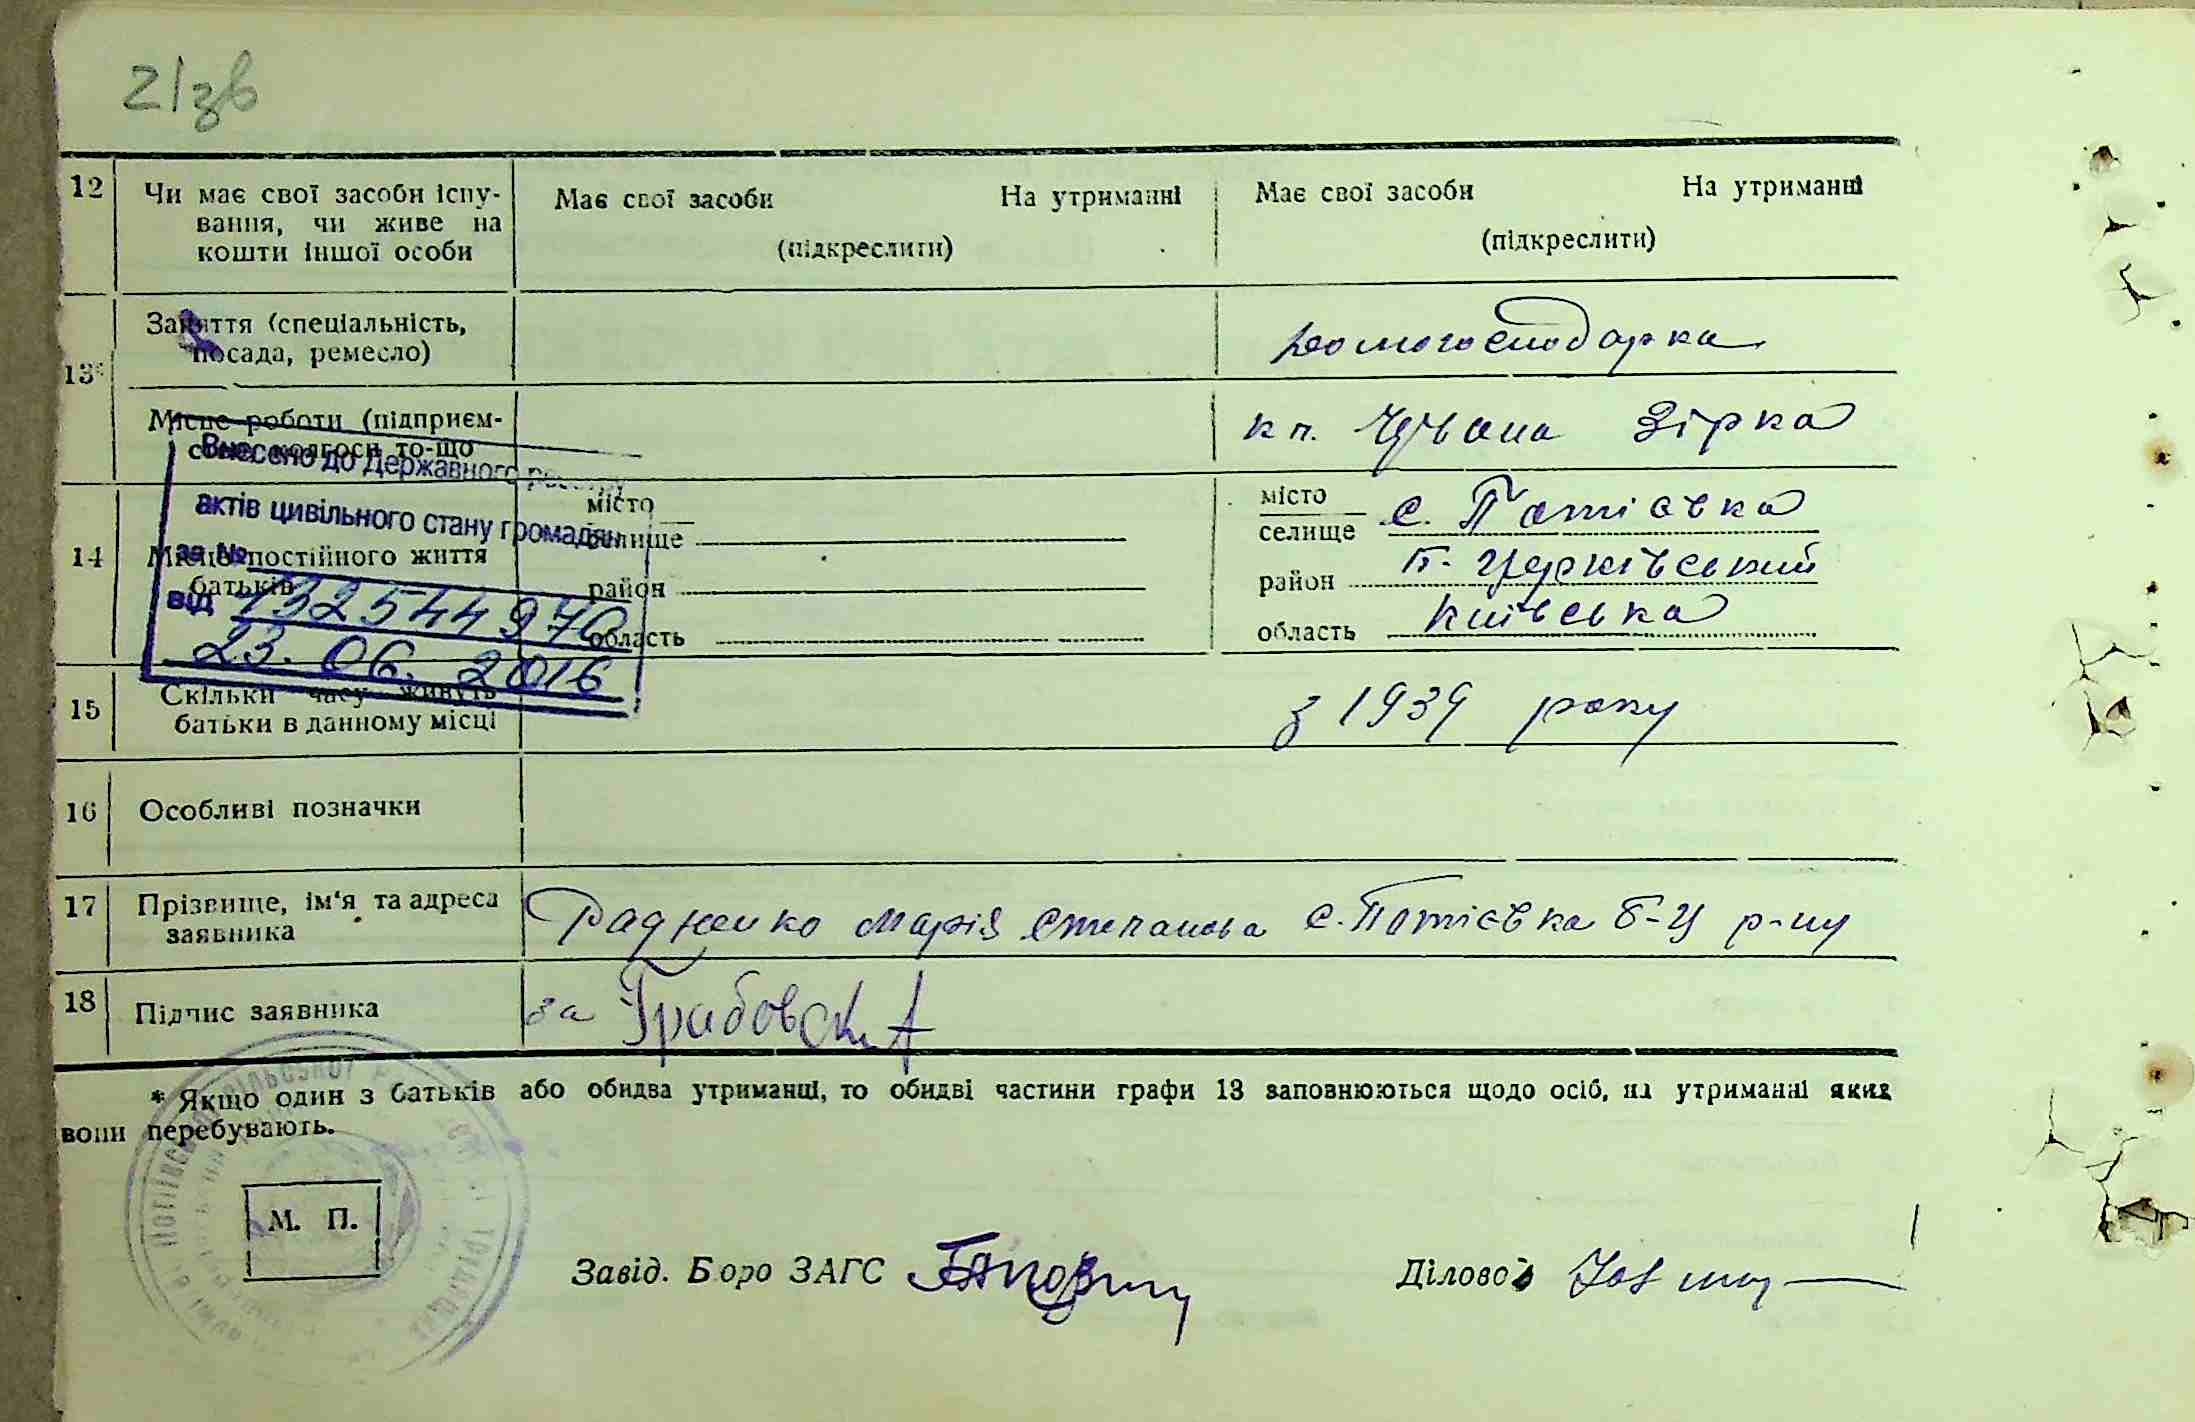 21зв
12 Чи має свої засоби існу-
вання, чи живе на
кошти іншої особи
Має свої засоби На утриманні
(підкреслити)
Має свої засоби На утриманні
(підкреслити)
13* Заняття (спеціальність,
посада, ремесло)
домогосподарка
Місце роботи (підприєм-
ство, колгосп то-що
кп. Червона Зірка
Внесено до Державного реєстру
актів цивільного стану громадян
за №
від 132544970
23.06.2016
14 Місце постійного життя
батьків
місто
селище
район
область
місто
селище с. Потієвка
район Б-Церківський
область Київська
15 Скільки часу живуть
батьки в данному місці
з 1939 року
16 Особливі позначки
17 Прізвище, ім'я та адреса
заявника
Марія Степанова с. Потієвка Б-Ц р-ну
18 Підпис заявника
за Грабовск
* Якщо один з батьків або обидва утриманці, то обидві частини графи 13 заповнюються щодо осіб, на утриманні яких
вони перебувають.
М. П.
Завід. Бюро ЗАГС
Діловод